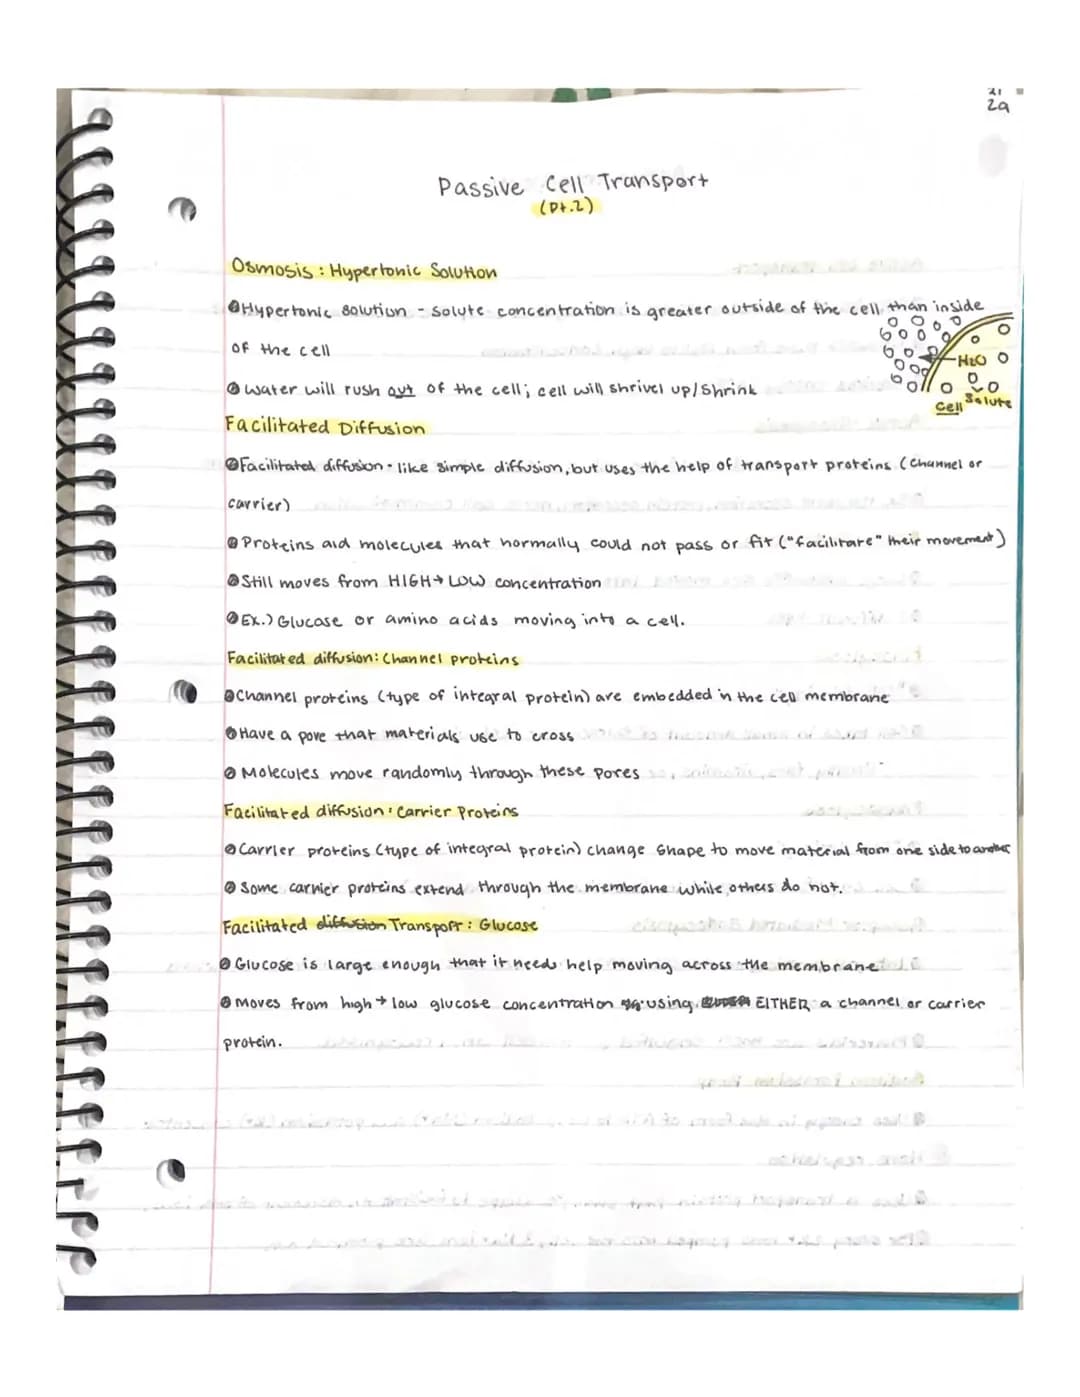 2a
Passive Cell Transport
(Pt.2)
Osmosis : Hypertonic Solution
Hypertonic solution - solute concentration is greater outside of the cell than inside
of the cell
H2O
Water will rush out of the cell; cell will shrivel up/shrink
Solute
Cell
Facilitated Diffusion
Facilitated diffusion - like simple diffusion, but uses the help of transport proteins (channel or
carrier)
Proteins aid molecules that normally could not pass or fit ("facilitate" their movement)
Still moves from HIGH→LOW concentration
Ex.) Glucose or amino acids moving into a cell.
Facilitated diffusion: Channel proteins
Channel proteins (type of integral protein) are embedded in the cell membrane
Have a pore that materials use to cross
Molecules move randomly through these pores
Facilitated diffusion: Carrier Proteins
Carrier proteins (type of integral protein) change shape to move material from one side to another
Some carrier proteins extend through the membrane while others do not.
Facilitated diffusion Transport : Glucose
Glucose is large enough that it needs help moving across the membrane
Moves from high→low glucose concentration using EITHER a channel or carrier
protein.